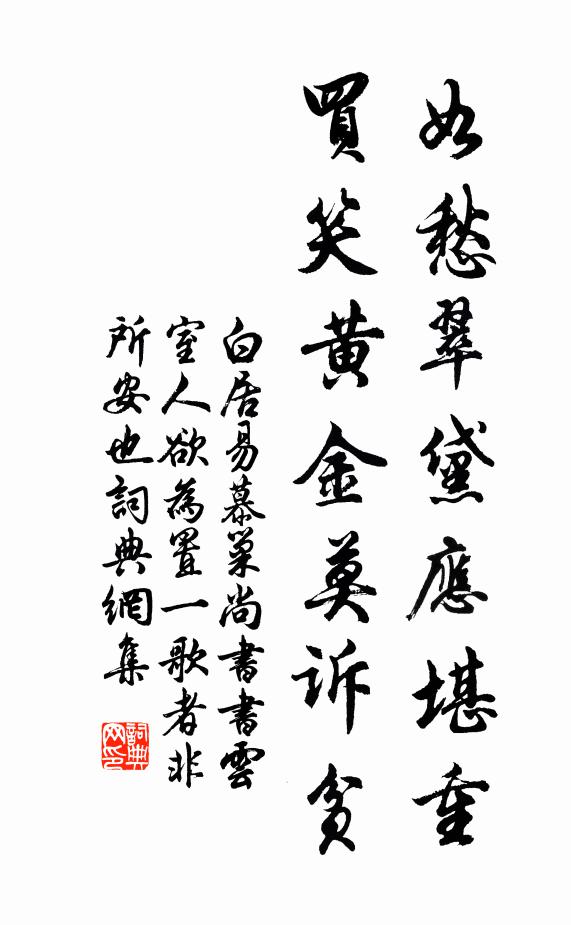 如愁翠黛應堪重
買笑黃金莫訴貧
白居易慕巢尚書書雲
室人欲為置一歌者非
所安也詞典網集
詞典
网印